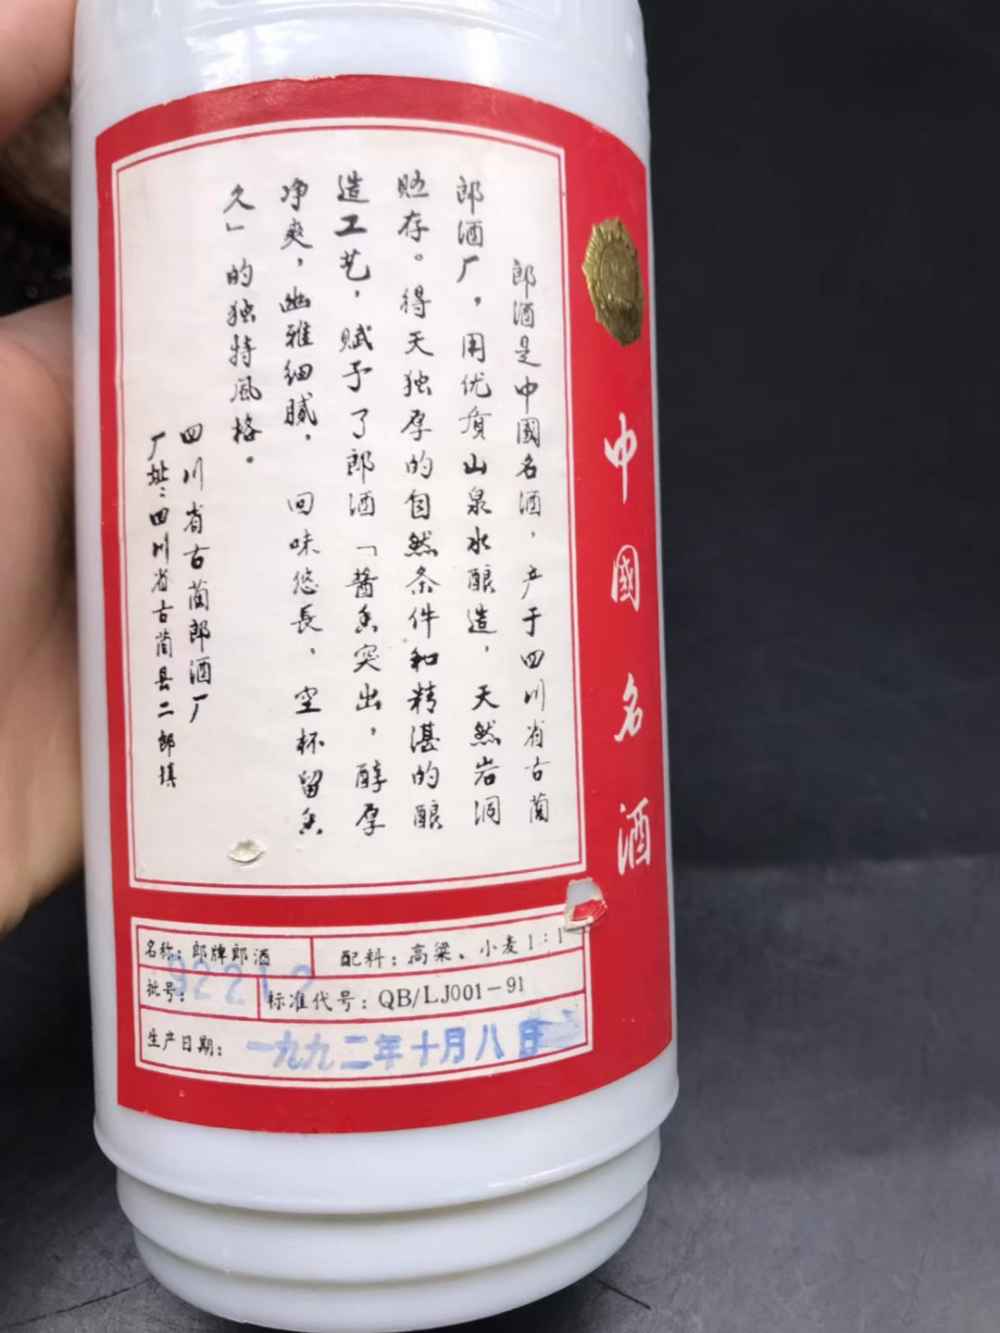 郎酒是中國名酒，产于四川省古蔺
郎酒厂，用优质山泉水酿造，天然岩洞
贮存。得天独厚的自然条件和精湛的酿
造工艺，赋予了郎酒「酱香突出，醇厚
净爽，幽雅细腻，回味悠長，空杯留香
久」的独特风格。
四川省古蔺郎酒厂
厂址：四川省古蔺县二郎镇
中國名酒
名称：郎牌郎酒
配料：高粱、小麦1：1
批号：
标准代号：QB/LJ001-91
生产日期：一九九二年十月八日